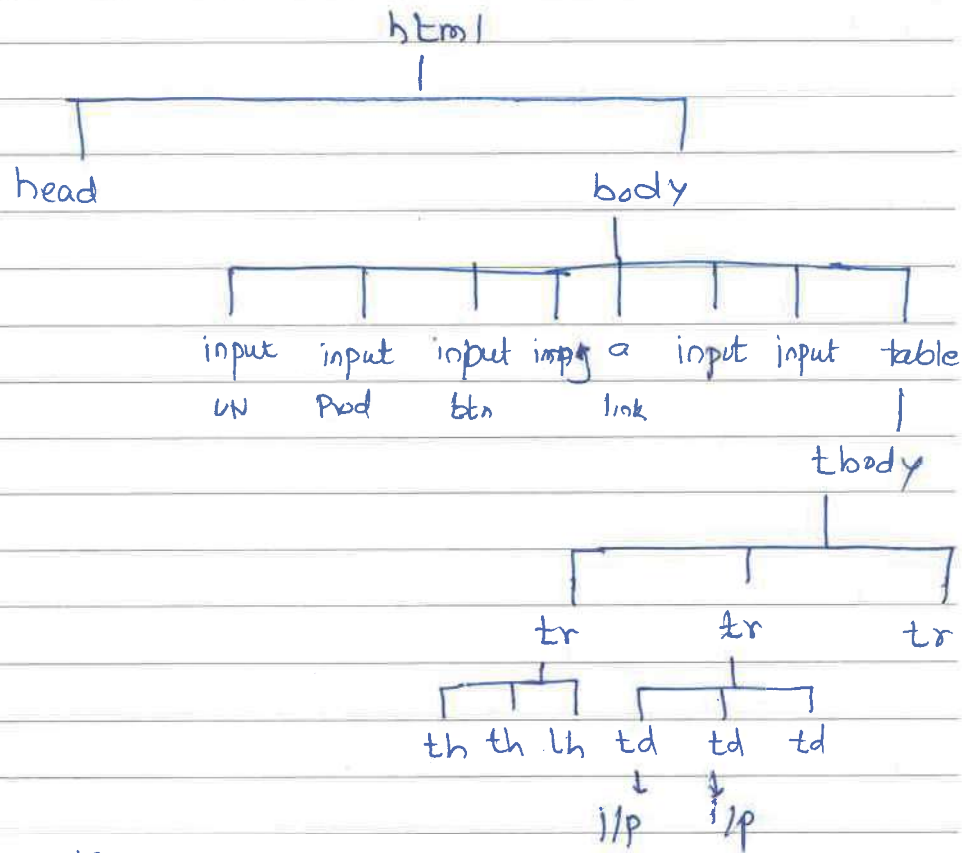 html
head body
input input input impg a input input table
UN Pwd btn link
tbody
tr tr tr
th th th td td td
i/p i/p